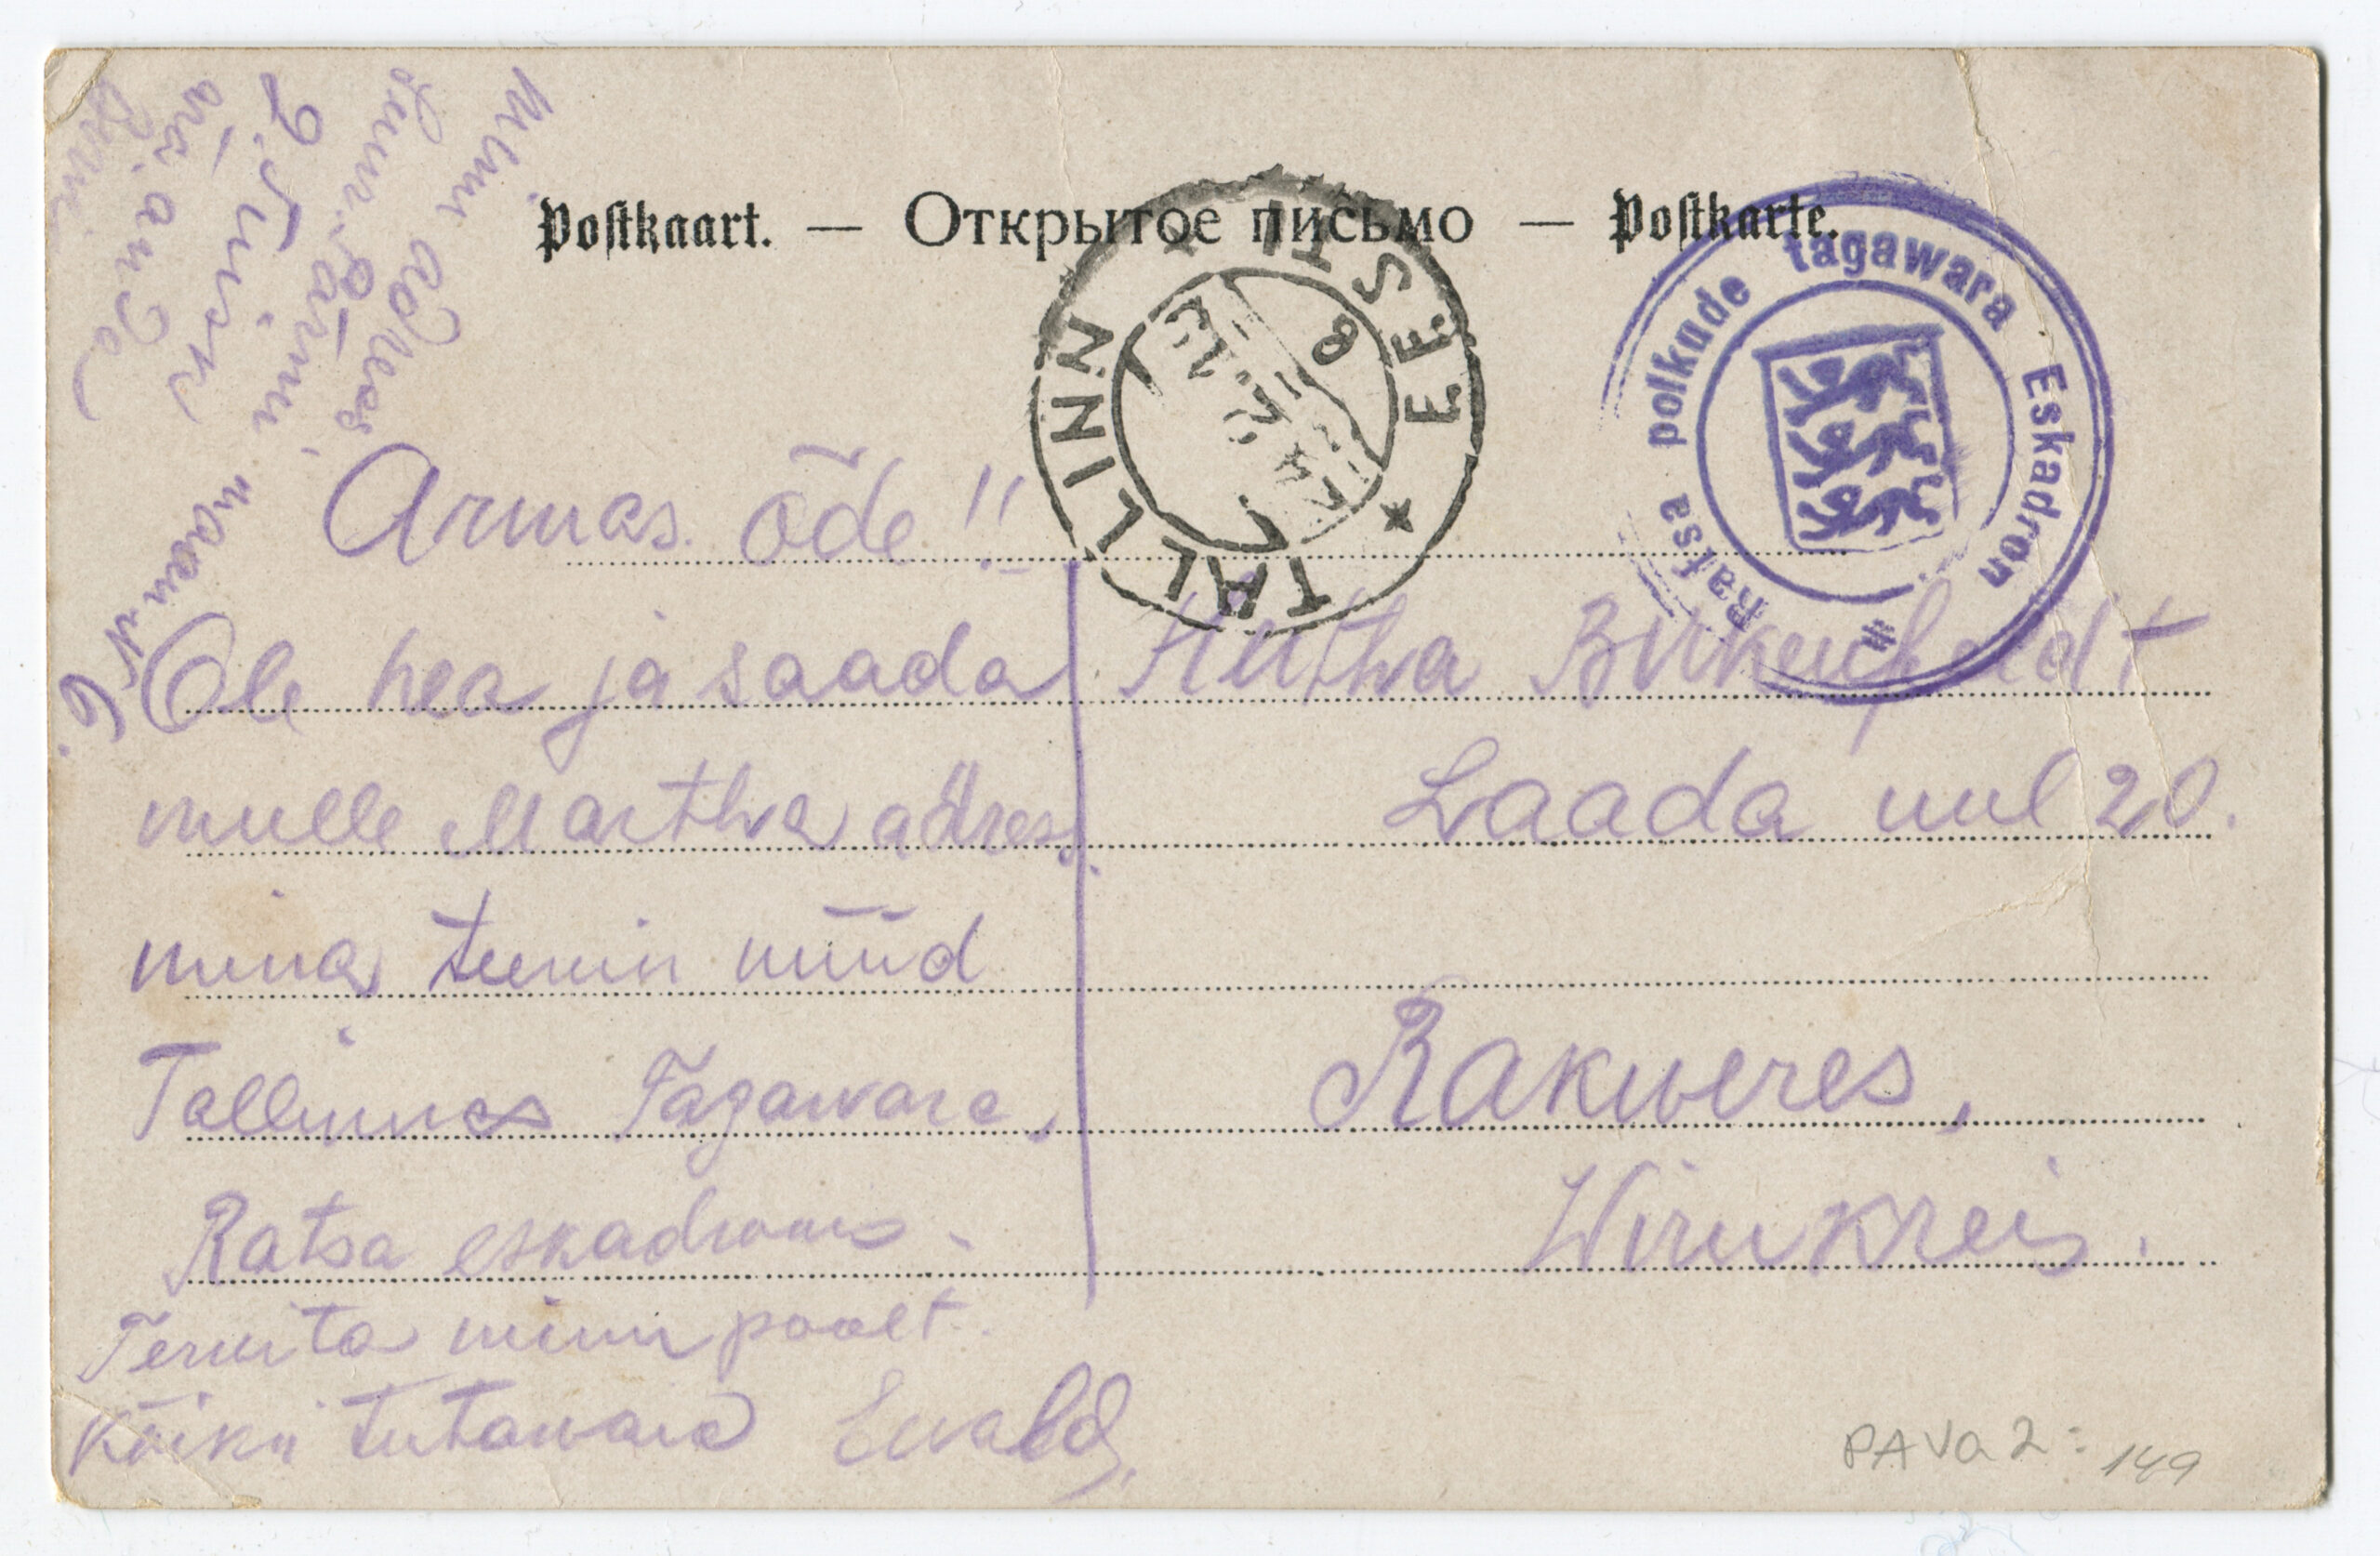 Postkaart. — Открытое письмо — Postkarte.
TALLINN EESTI
8
Ratsa polkude tagawara Eskadron
Minu adreas
Suur. Pärnu maant
9. Teisn
ära anda
6.
Armas. õde!!
Ole hea ja saada
mulle Martha adress.
mina teenin nüüd
Tallinnas Tagawara
Ratsa eskadronis.
Terwita minu poolt.
Kõiki tuttawaid Ewald,
Hertha Birkenfeldt
Laada uul 20.
Rakweres,
Wirukreis.
PAVa 2: 149